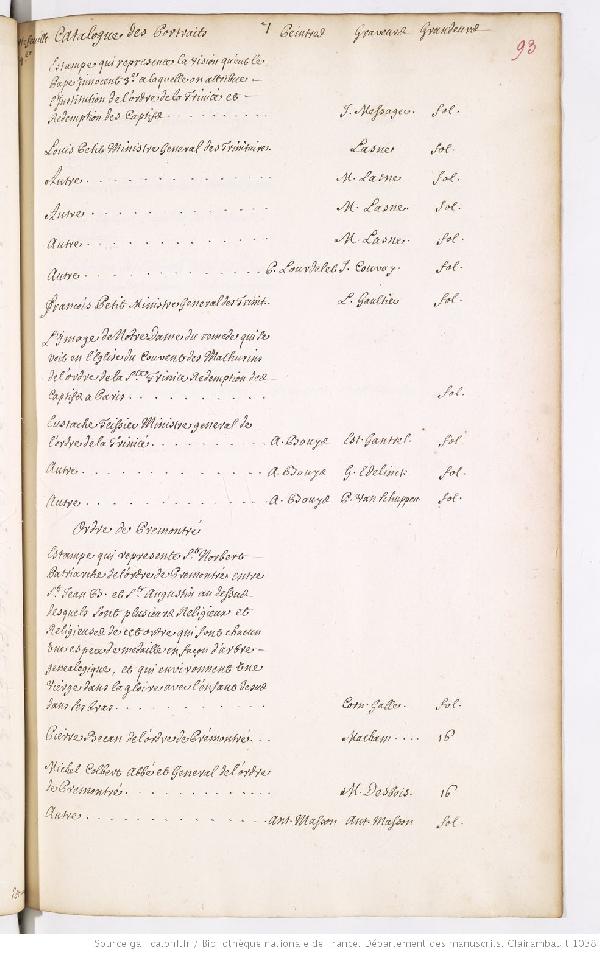 Catalogue des Portraits Peintres Graveurs Grandeurs
93
Estampe qui represente la vision qu'eut le
Pape Innocent 3. a laquelle on attribue
l'Institution de l'ordre de la Trinité et
Redemption des Captifs . . . . . . . . . . J. Messager fol.
Louis Petit Ministre General des Trinitaires Lasne fol.
Autre . . . . . . . . . . . . M. Lasne fol.
Autre . . . . . . . . . . . . M. Lasne fol.
Autre . . . . . . . . . . . . M. Lasne fol.
Autre . . . . . . . . . . . . P. Lourdelet J. Couvay fol.
François Petit Ministre General des Trinit. L. Gaultier fol.
L'Image de Notre Dame du remede qui se
voit en l'Eglise du Couvent des Mathurins
de l'ordre de la Ste. Trinité Redemption des
Captifs a Paris . . . . . . . . . . fol.
Eustache Teissier Ministre general de
l'ordre de la Trinité . . . . . . . . . A. Bouys Est. Gantrel fol
Autre . . . . . . . . . . . . A. Bouys G. Edelinck fol.
Autre . . . . . . . . . . . . A. Bouys P. Van Schuppen fol.
Ordre de Premontré
Estampe qui represente St. Norbert
Patriarche de l'ordre de Premontré entre
St. Jean B. et St. Augustin au dessus
desquels sont plusieurs Religieux et
Religieuses de cet ordre qui sont chacun
une espece de medaille en façon d'arbre
genealogique, et qui environnent une
Vierge dans la gloire avec l'enfant Jesus
dans les bras . . . . . . . . . . Corn. Galle fol.
Pierre Becan de l'ordre de Prémontré . . . Matham . . . . 16
Michel Colbert Abbé et General de l'ordre
de Premontré . . . . . . . . . . M. Desbois 16
Autre . . . . . . . . . . . . Ant. Masson Ant. Masson fol.
Source gallica.bnf.fr / Bibliothèque nationale de France. Département des manuscrits. Clairambault 1038